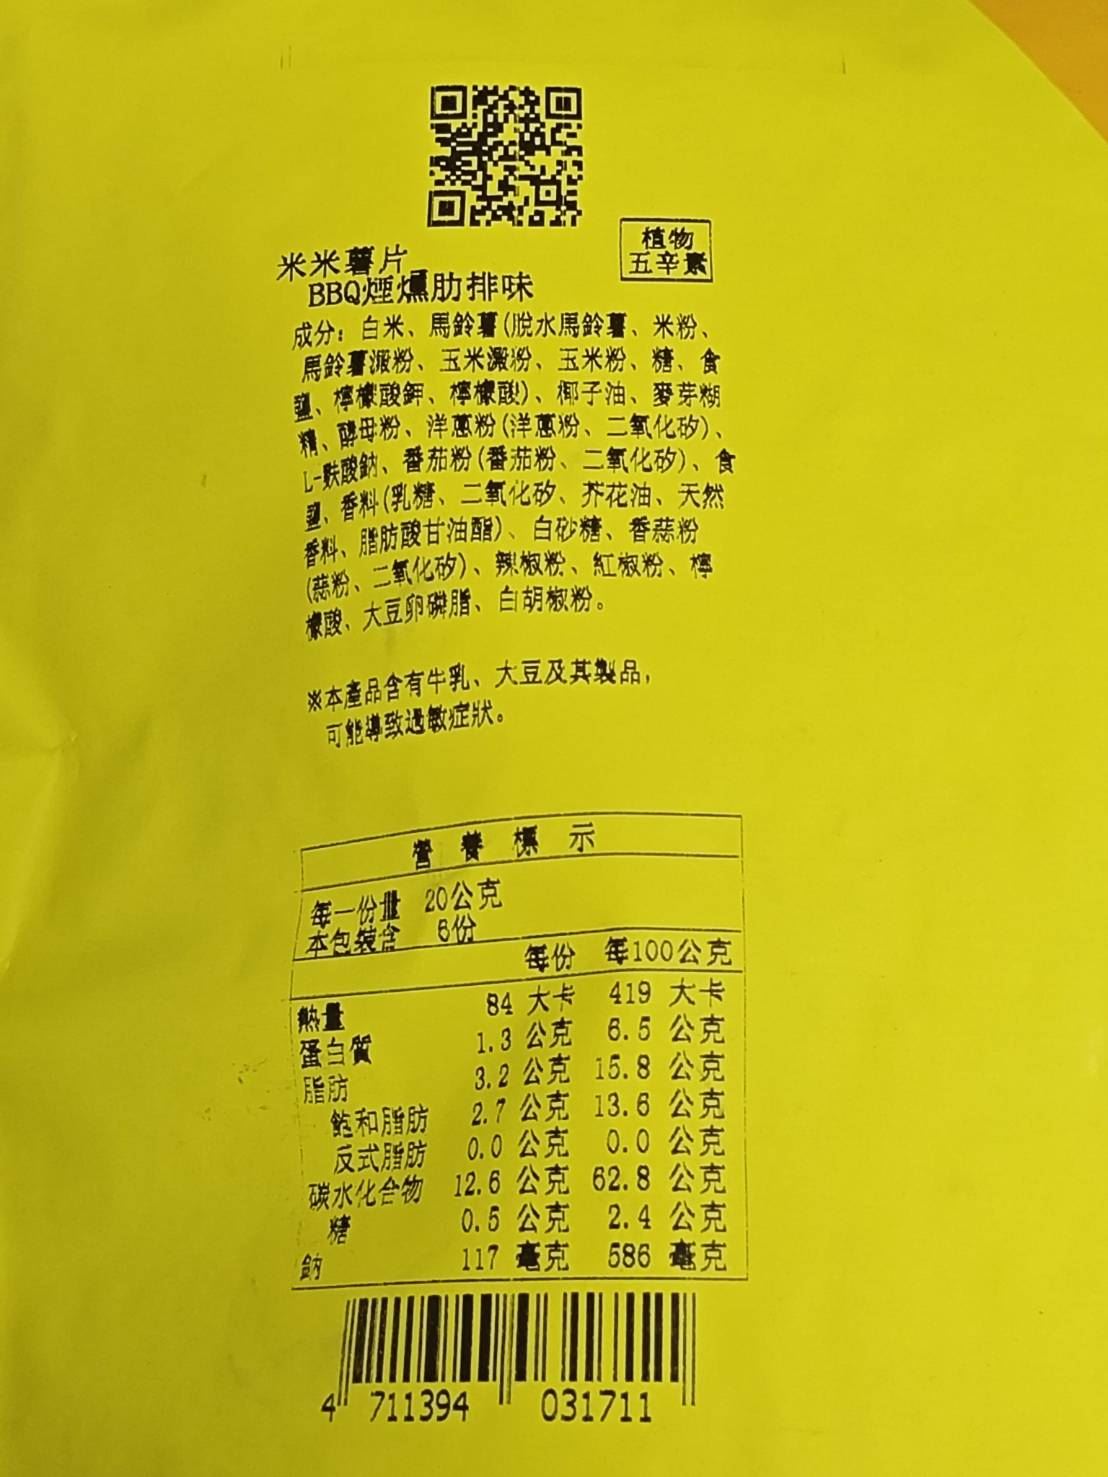 植物
五辛素
米米薯片
BBQ煙燻肋排味
成分：白米、馬鈴薯(脫水馬鈴薯、米粉、
馬鈴薯澱粉、玉米澱粉、玉米粉、糖、食
鹽、檸檬酸鉀、檸檬酸)、椰子油、麥芽糊
精、酵母粉、洋蔥粉(洋蔥粉、二氧化矽)、
L-麩酸鈉、番茄粉(番茄粉、二氧化矽)、食
鹽、香料(乳糖、二氧化矽、芥花油、天然
香料、脂肪酸甘油酯)、白砂糖、香蒜粉
(蒜粉、二氧化矽)、辣椒粉、紅椒粉、檸
檬酸、大豆卵磷脂、白胡椒粉。
※本產品含有牛乳、大豆及其製品，
可能導致過敏症狀。
營養標示
每一份量 20公克
本包裝含 6份
每份 每100公克
熱量 84 大卡 419 大卡
蛋白質 1.3 公克 6.5 公克
脂肪 3.2 公克 15.8 公克
飽和脂肪 2.7 公克 13.6 公克
反式脂肪 0.0 公克 0.0 公克
碳水化合物 12.6 公克 62.8 公克
糖 0.5 公克 2.4 公克
鈉 117 毫克 586 毫克
4 711394 031711